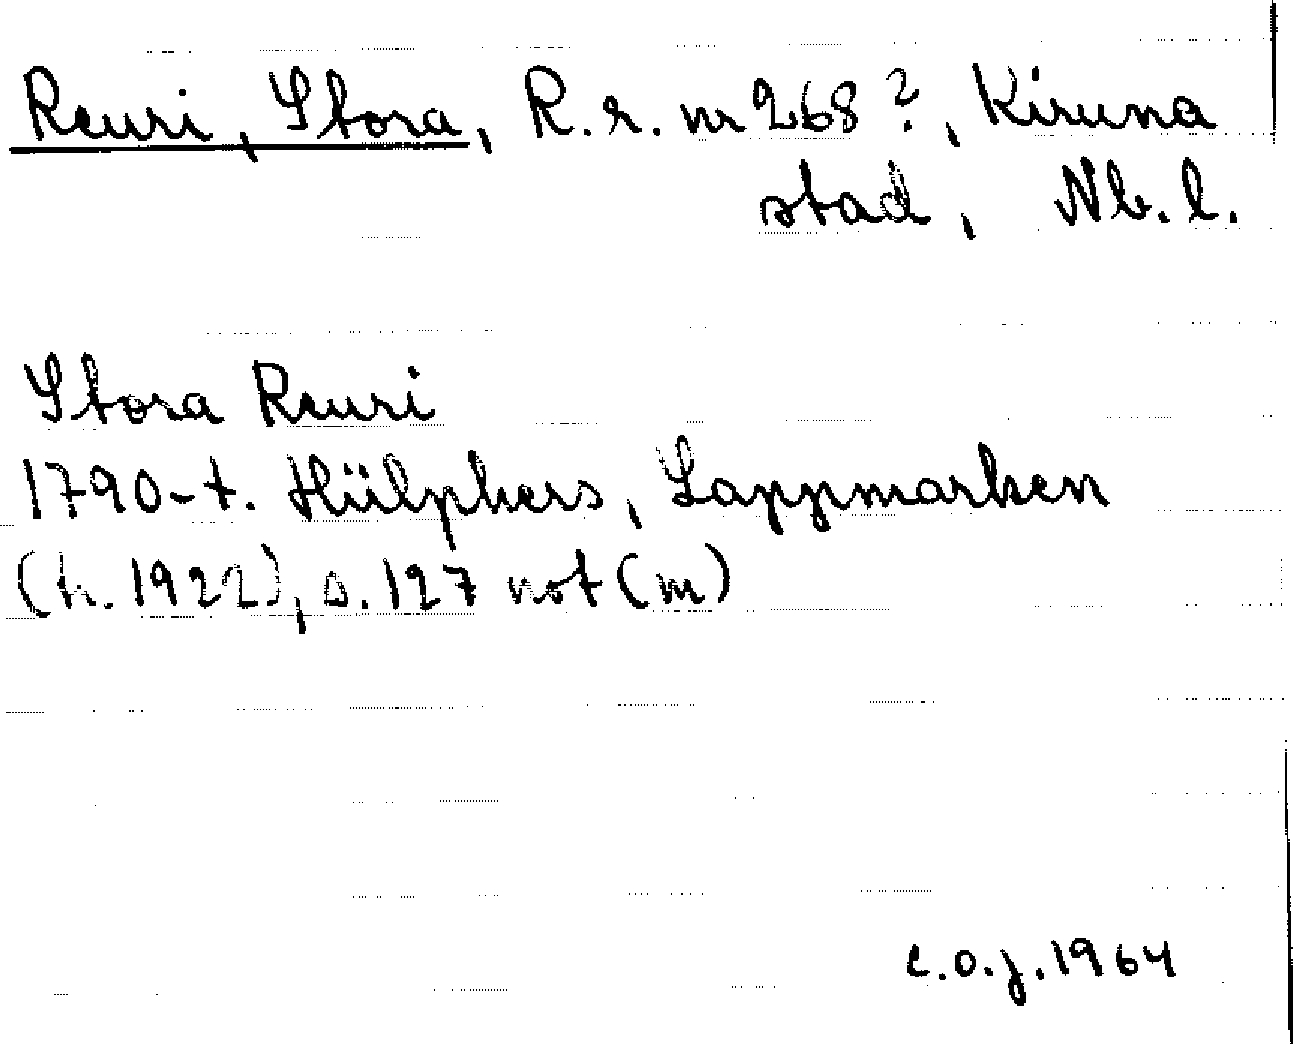 Reuri, Stora, R.r. nr 268?, Kiruna
stad, Nb.l.
Stora Reuri
1790-t. Hülphers, Lappmarken
(h. 1922), s. 127 not (m)
C.O.J. 1964